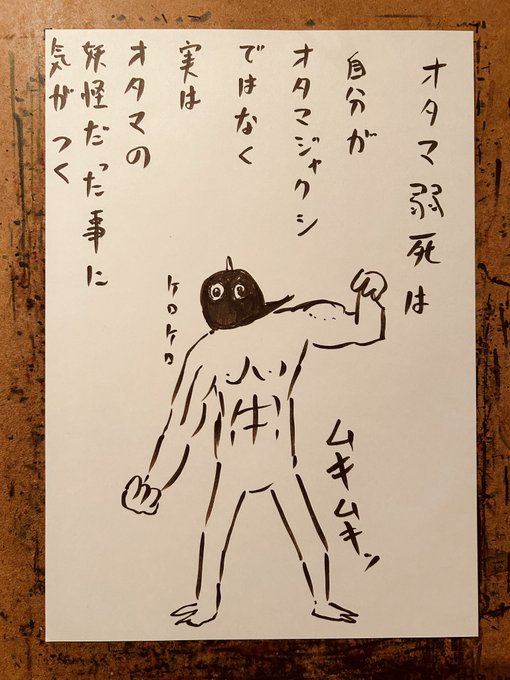 オタマ弱死は
自分が
オタマジャクシ
ではなく
実は
オタマの
妖怪だった事に
気がつく
ケロケロ
ムキムキッ